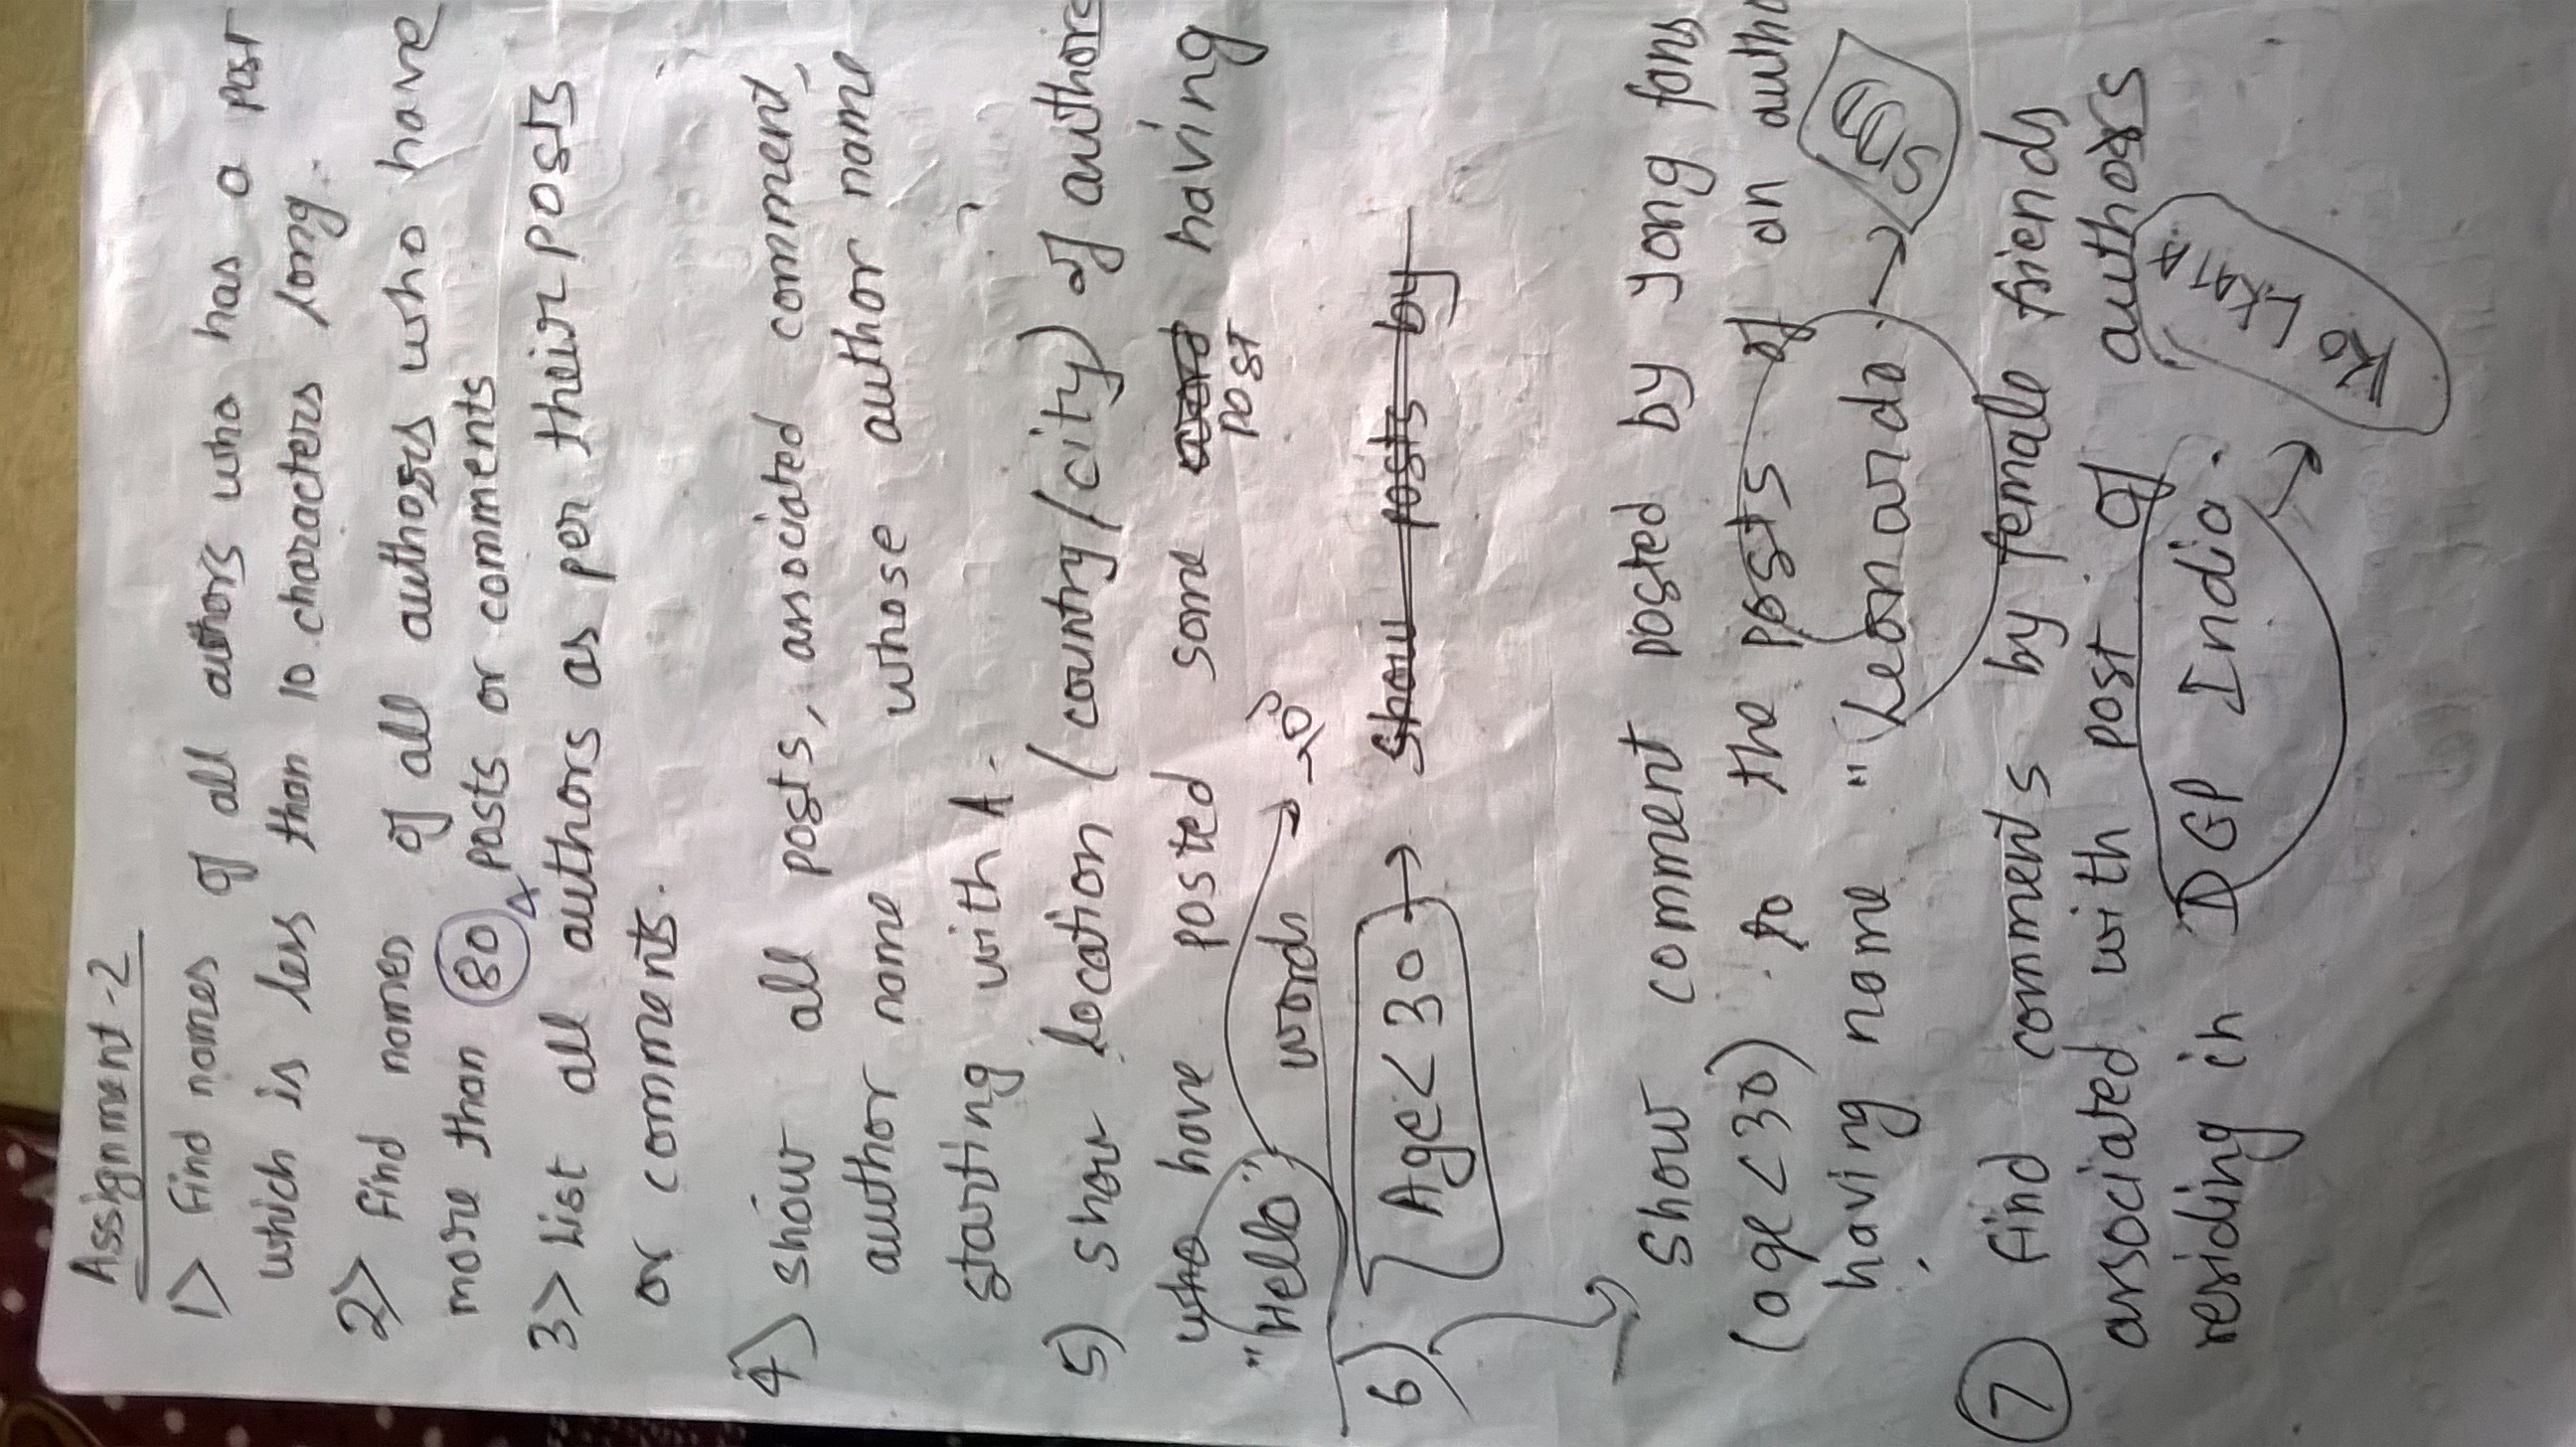 Assignment-2
1> Find names of all authors who has a post
which is less than 10 characters long.
2> Find names of all authors who have
more than 80 posts or comments
4
3> List all authors as per their posts
or comments.
4> show all posts, associated comment,
author name whose author name
starting with A.
5) show location (country/city) of authors
who have posted some word having
post
"Hello" words
6) Age<30 → Show posts by
Show comment posted by yong fans
(age<30) to the posts of an autho
having name "Leonardo.
7 Find comments by female friends
associated with post of authors
residing in DGP India.
KOLKATA